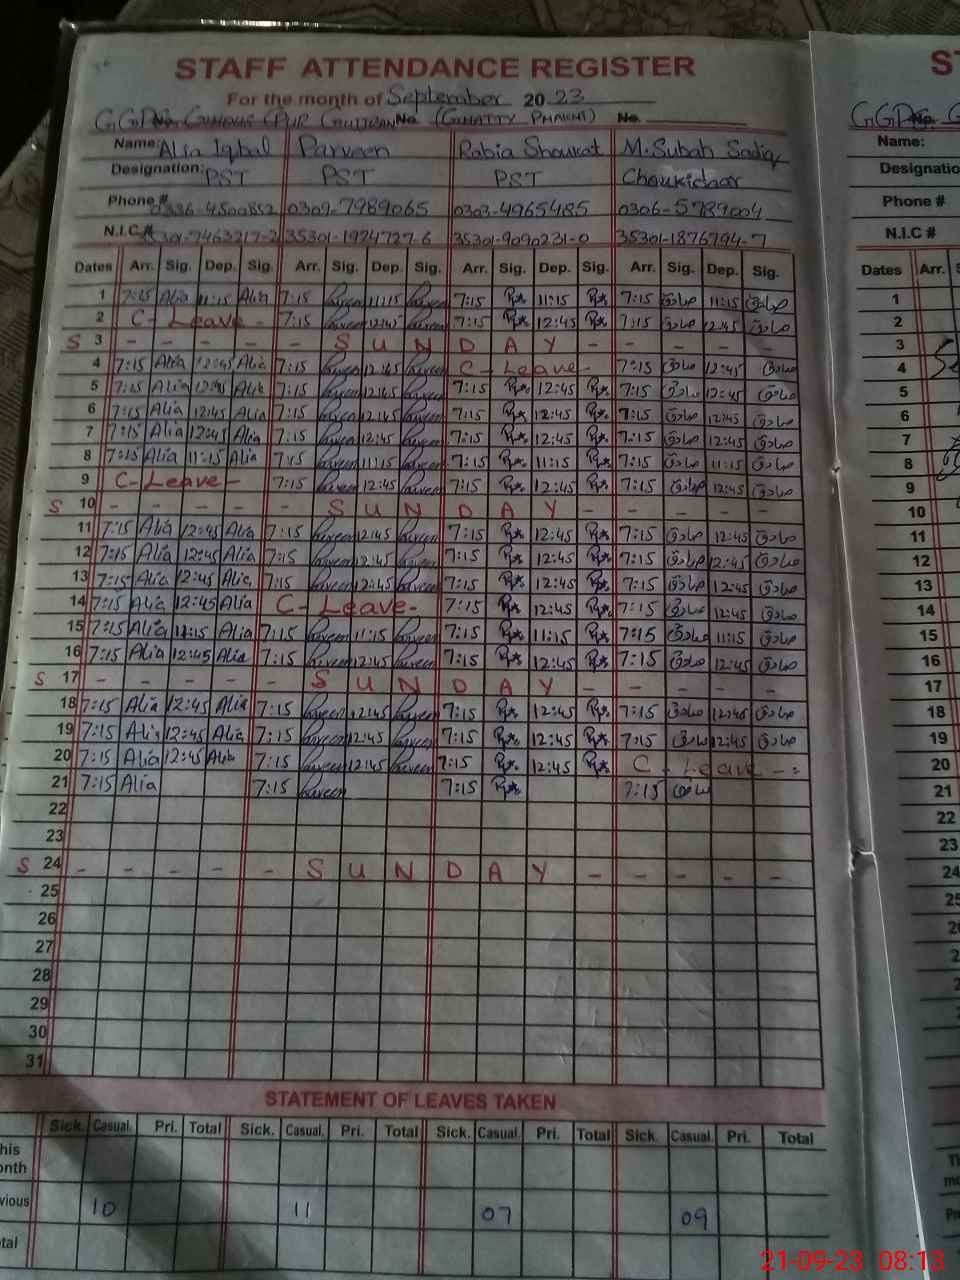 STAFF ATTENDANCE REGISTER
For the month of September 2023
GGPS No. (GHATTY PHAKNI) No.
Name: Alia Iqbal Parveen Rabia Shoukat M. Subah Sadiq
Designation: PST PST PST Choukidaar
Phone # 0336-4500852 0309-7989065 0303-4965485 0306-5789004
N.I.C # 35301-7463217-2 35301-1924727-6 35301-9090231-0 35301-1876794-7
Dates Arr. Sig. Dep. Sig. Arr. Sig. Dep. Sig. Arr. Sig. Dep. Sig. Arr. Sig. Dep. Sig.
1 7:15 Alia 11:15 Alia 7:15 Parveen 11:15 Parveen 7:15 11:15 7:15 صادق 11:15 صادق
2 C-Leave- 7:15 Parveen 12:45 Parveen 7:15 12:45 7:15 صادق 12:45 صادق
S 3 - - - - - S U N D A Y - - - - -
4 7:15 Alia 12:45 Alia 7:15 Parveen 12:45 Parveen C-Leave- 7:15 صادق 12:45 صادق
5 7:15 Alia 12:45 Alia 7:15 Parveen 12:45 Parveen 7:15 12:45 7:15 صادق 12:45 صادق
6 7:15 Alia 12:45 Alia 7:15 Parveen 12:45 Parveen 7:15 12:45 7:15 صادق 12:45 صادق
7 7:15 Alia 12:45 Alia 7:15 Parveen 12:45 Parveen 7:15 12:45 7:15 صادق 12:45 صادق
8 7:15 Alia 11:15 Alia 7:15 Parveen 11:15 Parveen 7:15 11:15 7:15 صادق 11:15 صادق
9 C-Leave- 7:15 Parveen 12:45 Parveen 7:15 12:45 7:15 صادق 12:45 صادق
S 10 - - - - - S U N D A Y - - - - -
11 7:15 Alia 12:45 Alia 7:15 Parveen 12:45 Parveen 7:15 12:45 7:15 صادق 12:45 صادق
12 7:15 Alia 12:45 Alia 7:15 Parveen 12:45 Parveen 7:15 12:45 7:15 صادق 12:45 صادق
13 7:15 Alia 12:45 Alia 7:15 Parveen 12:45 Parveen 7:15 12:45 7:15 صادق 12:45 صادق
14 7:15 Alia 12:45 Alia C-Leave- 7:15 12:45 7:15 صادق 12:45 صادق
15 7:15 Alia 11:15 Alia 7:15 Parveen 11:15 Parveen 7:15 11:15 7:15 صادق 11:15 صادق
16 7:15 Alia 12:45 Alia 7:15 Parveen 12:45 Parveen 7:15 12:45 7:15 صادق 12:45 صادق
S 17 - - - - - S U N D A Y - - - - -
18 7:15 Alia 12:45 Alia 7:15 Parveen 12:45 Parveen 7:15 12:45 7:15 صادق 12:45 صادق
19 7:15 Alia 12:45 Alia 7:15 Parveen 12:45 Parveen 7:15 12:45 7:15 صادق 12:45 صادق
20 7:15 Alia 12:45 Alia 7:15 Parveen 12:45 Parveen 7:15 12:45 C-Leave-
21 7:15 Alia 7:15 Parveen 7:15 7:15 صادق
22
23
S 24 - - - - - S U N D A Y - - - - -
25
26
27
28
29
30
31
STATEMENT OF LEAVES TAKEN
Sick. Casual. Pri. Total Sick. Casual. Pri. Total Sick. Casual. Pri. Total Sick. Casual. Pri. Total
10 11 07 09
GGPS
Name:
Designatio
Phone #
N.I.C #
Dates Arr.
1
2
3
4
5
6
7
8
9
10
11
12
13
14
15
16
17
18
19
20
21
22
23
24
21-09-23 08:13